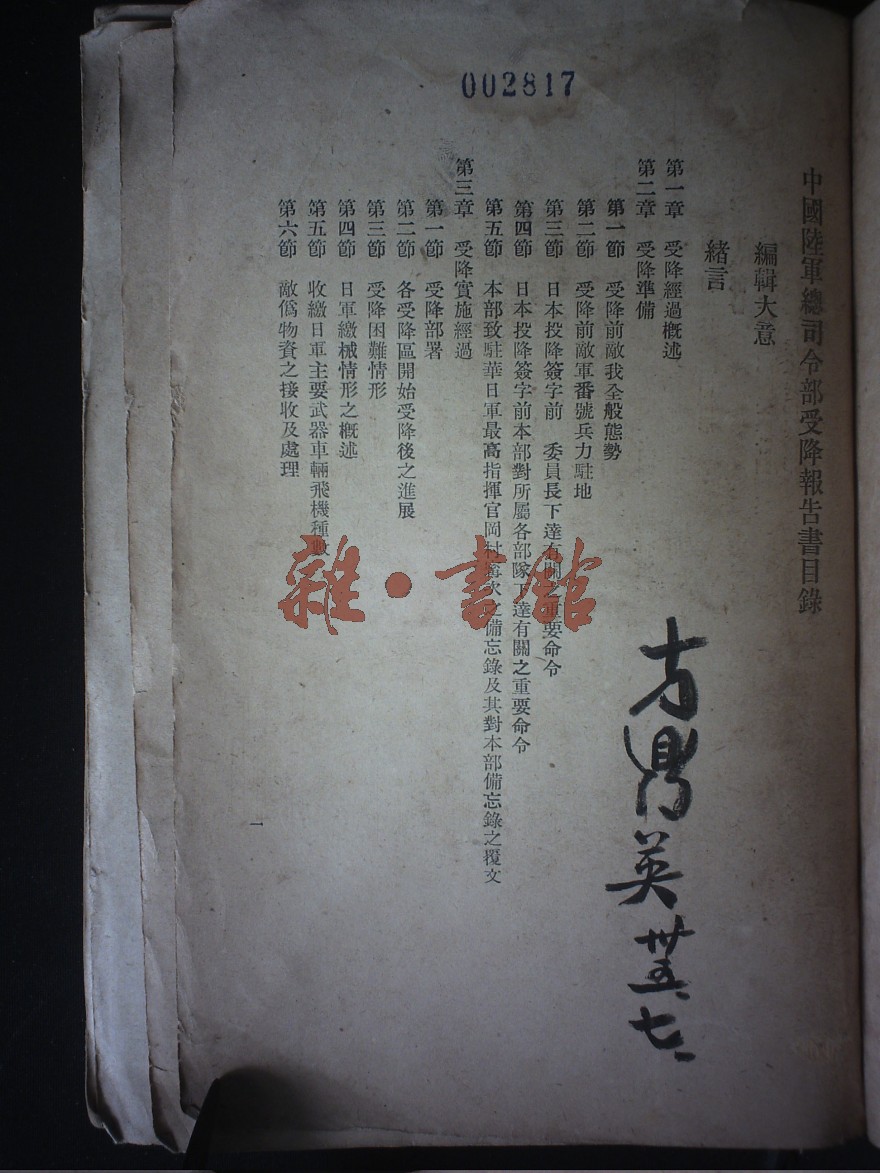 002817
中國陸軍總司令部受降報告書目錄
編輯大意
緒言
第一章　受降經過概述
第二章　受降準備
第一節　受降前敵我全般態勢
第二節　受降前敵軍番號兵力駐地
第三節　日本投降簽字前　委員長下達有關之重要命令
第四節　日本投降簽字前本部對所屬各部隊下達有關之重要命令
第五節　本部致駐華日軍最高指揮官岡村寧次之備忘錄及其對本部備忘錄之覆文
第三章　受降實施經過
第一節　受降部署
第二節　各受降區開始受降後之進展
第三節　受降困難情形
第四節　日軍繳械情形之概述
第五節　收繳日軍主要武器車輛飛機種數
第六節　敵僞物資之接收及處理
一
方鼎英　卅五、七、
雜·書館